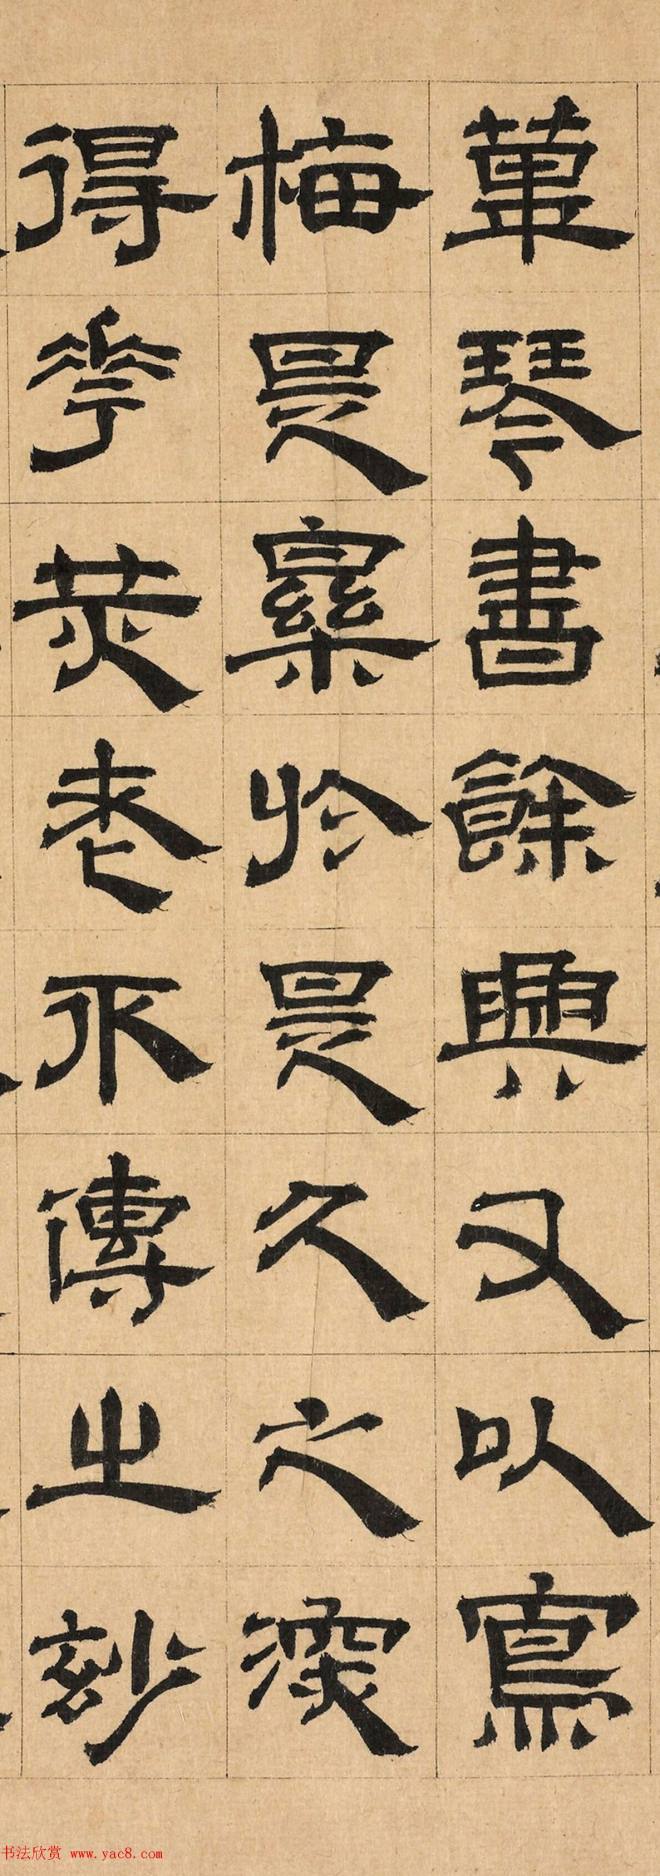 琴書餘興又以寫
梅是於是久之深
得華光老不傳之妙
书法欣赏 www.yac8.com